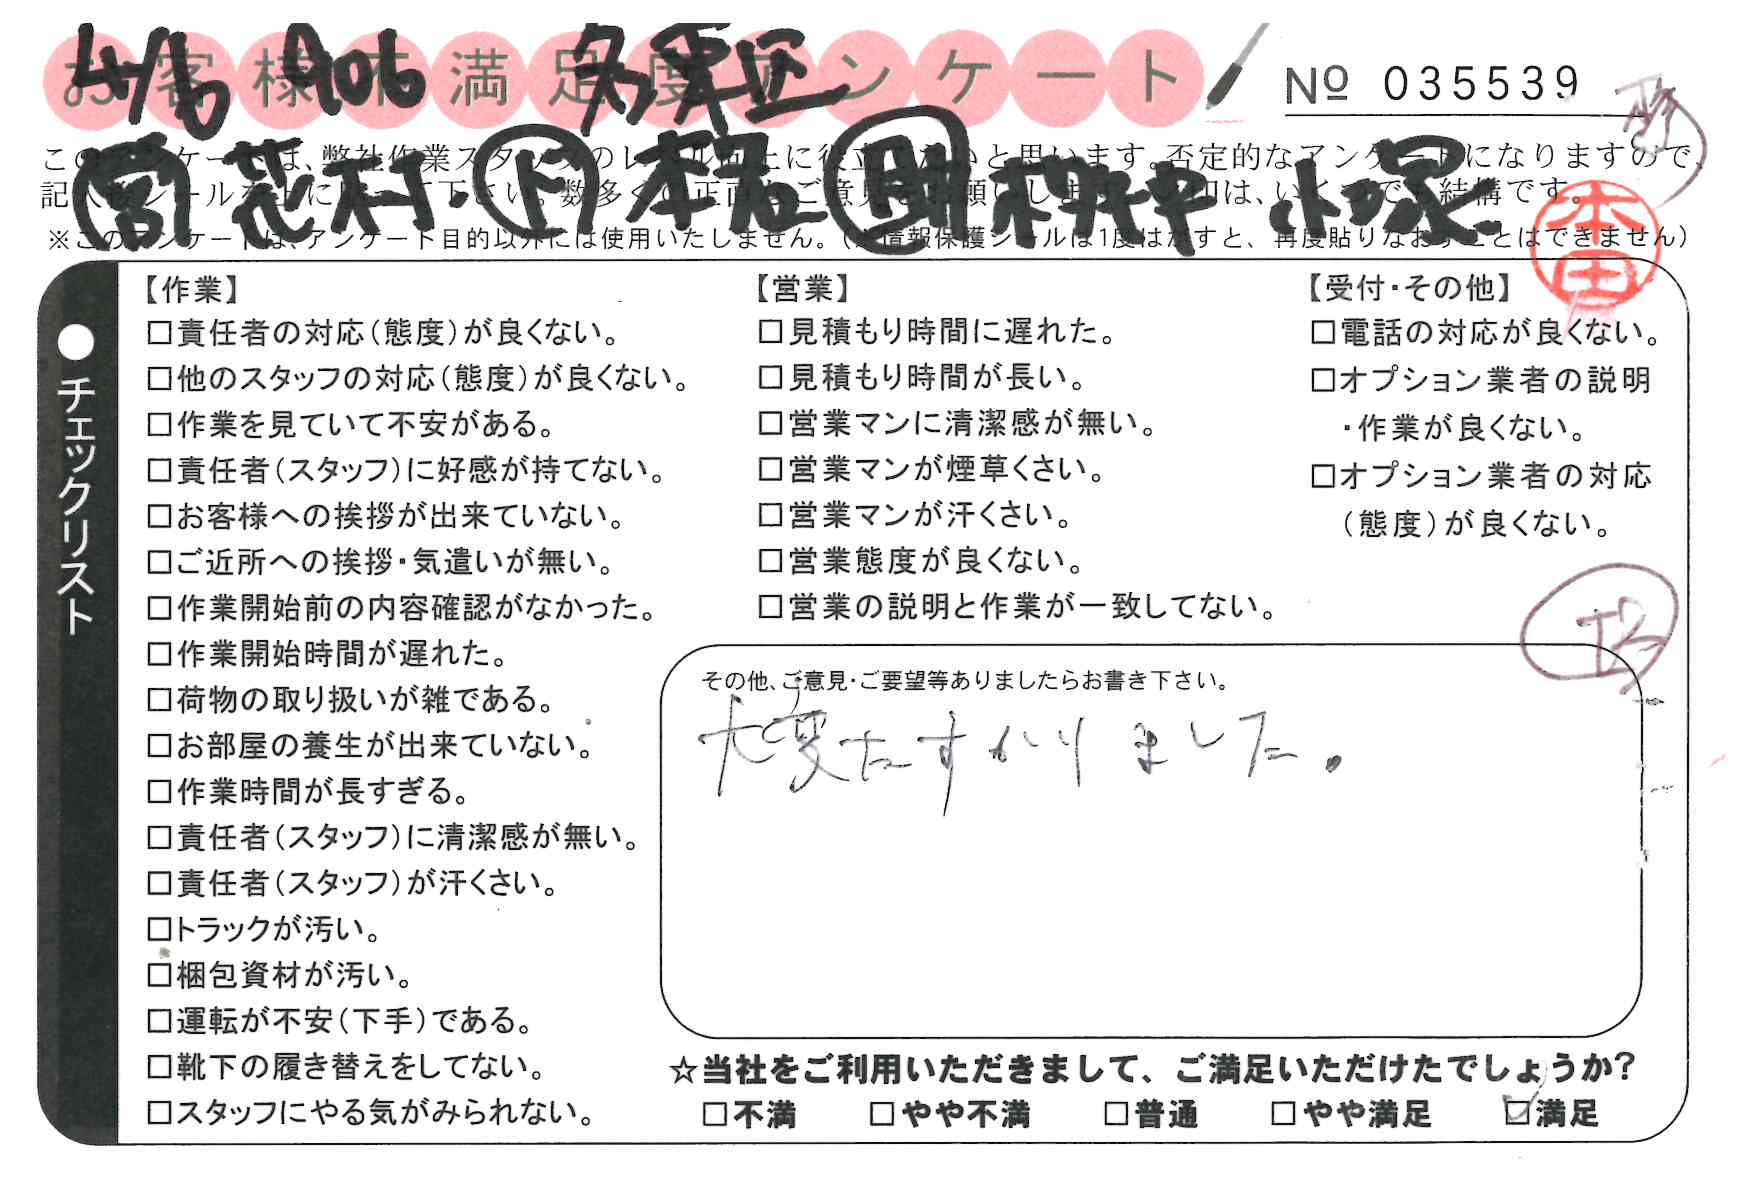 お客様不満足度アンケート
4/6 A06 多摩区
№ 035539
このアンケートは、弊社作業スタッフのレベル向上に役立てたいと思います。否定的なアンケートになりますので、
記入後シールを上に貼って下さい。数多くの正直なご意見をお願いします。〆印は、いくつでも結構です。
㊢ 花村・Ⓓ 本名 小塚
※このアンケートは、アンケート目的以外には使用いたしません。(※情報保護シールは1度はがすと、再度貼りなおすことはできません)
本田
●チェックリスト
【作業】
□責任者の対応(態度)が良くない。
□他のスタッフの対応(態度)が良くない。
□作業を見ていて不安がある。
□責任者(スタッフ)に好感が持てない。
□お客様への挨拶が出来ていない。
□ご近所への挨拶・気遣いが無い。
□作業開始前の内容確認がなかった。
□作業開始時間が遅れた。
□荷物の取り扱いが雑である。
□お部屋の養生が出来ていない。
□作業時間が長すぎる。
□責任者(スタッフ)に清潔感が無い。
□責任者(スタッフ)が汗くさい。
□トラックが汚い。
□梱包資材が汚い。
□運転が不安(下手)である。
□靴下の履き替えをしてない。
□スタッフにやる気がみられない。
【営業】
□見積もり時間に遅れた。
□見積もり時間が長い。
□営業マンに清潔感が無い。
□営業マンが煙草くさい。
□営業マンが汗くさい。
□営業態度が良くない。
□営業の説明と作業が一致してない。
【受付・その他】
□電話の対応が良くない。
□オプション業者の説明
・作業が良くない。
□オプション業者の対応
(態度)が良くない。
その他、ご意見・ご要望等ありましたらお書き下さい。
大変たすかりました。
☆当社をご利用いただきまして、ご満足いただけたでしょうか?
□不満 □やや不満 □普通 □やや満足 ☑満足